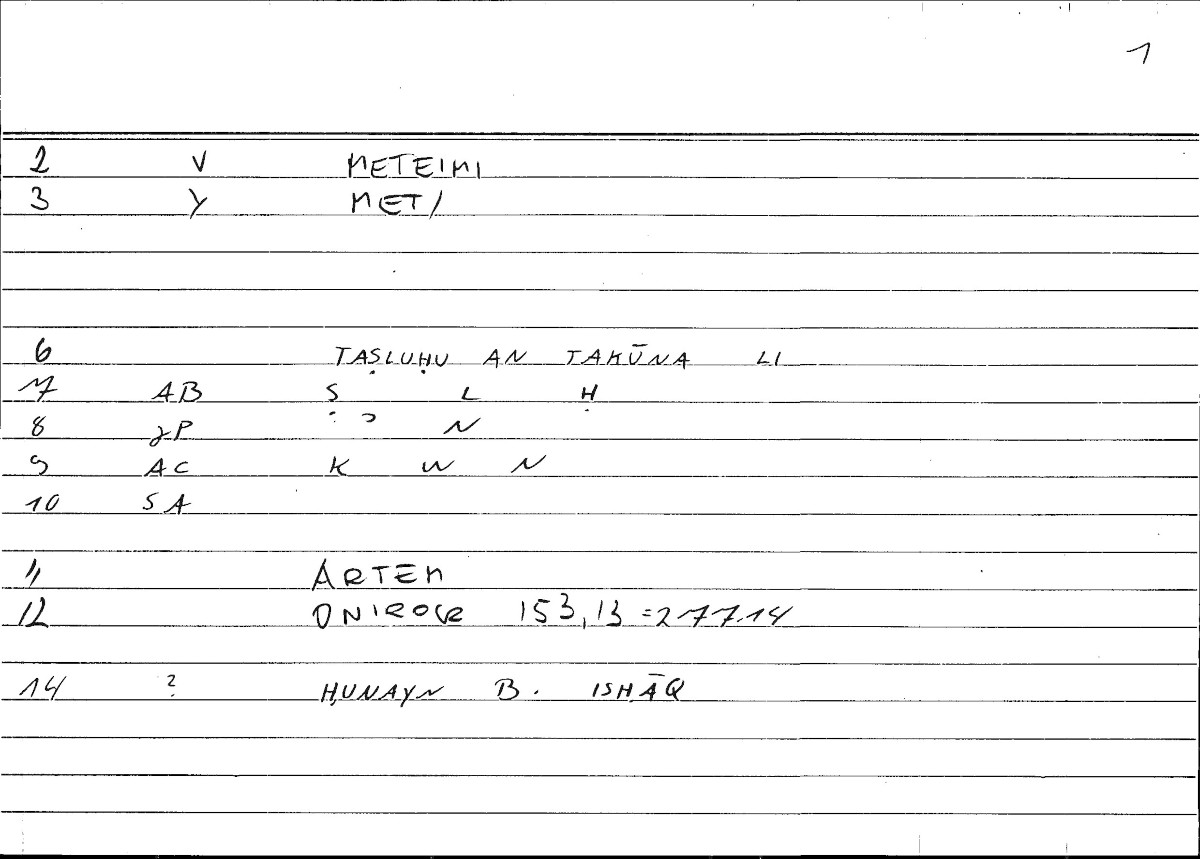 1
2 V METEIMI
3 Y MET/
6 TAṢLUḤU AN TAKŪNA LI
7 AB Ṣ L Ḥ
8 N
9 AC K W N
10 SA
11 ARTEM
12 ONIROCR 153,13=277.14
14 ? ḤUNAYN B. ISḤĀQ